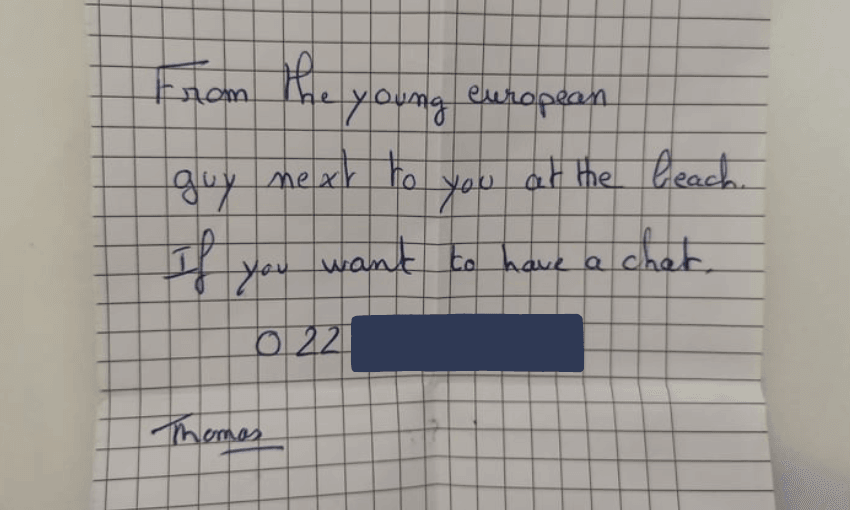 From the young european
guy next to you at the beach.
If you want to have a chat.
022
Thomas